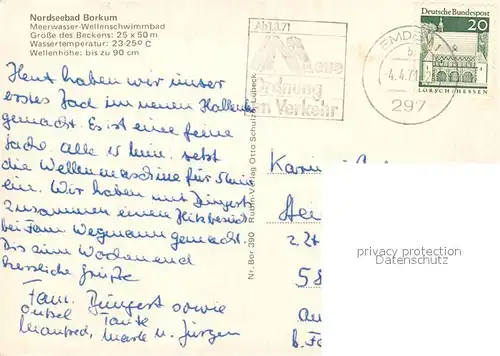 Nordseebad Borkum
Meerwasser-Wellenschwimmbad
Größe des Beckens: 25 x 50 m
Wassertemperatur: 23-25° C
Wellenhöhe: bis zu 90 cm
Heut haben wir unser
erstes Bad im neuen Hallenbad
gemacht. Es ist eine feine
Sache. Alle 15 Min. setzt
die Wellenmaschine für 5 Min
ein. Wir haben mit Jüngert
zusammen einen Kurzbesuch
bei Fam Wegmann gemacht.
Bis zum Wochenend
herzliche Grüße
Fam. Jüngert sowie
Onkel Tante
Manfred, u. Jürgen
Nr. Bor 390 Rubin-Verlag Otto Schulze, Lübeck
Ab 1.3.71
Neue
Ordnung
im Verkehr
EMDEN 1
4.4.71
297
Deutsche Bundespost
20
LORSCH/HESSEN
z. Zt
58
privacy protection
Datenschutz